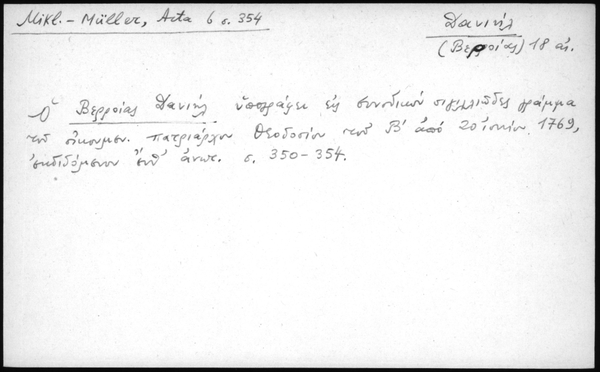 Mikl.-Müller, Acta 6 σ. 354
Δανιήλ
(Βερροίας) 18 αἰ.
Ὁ Βερροίας Δανιήλ ὑπογράφει εἰς συνοδικόν σιγιλλιῶδες γράμμα
τοῦ οἰκουμεν. πατριάρχου Θεοδοσίου τοῦ Β' ἀπό 20 ἰουνίου 1769,
ἐκδιδόμενον ἔνθ' ἀνωτ. σ. 350-354.